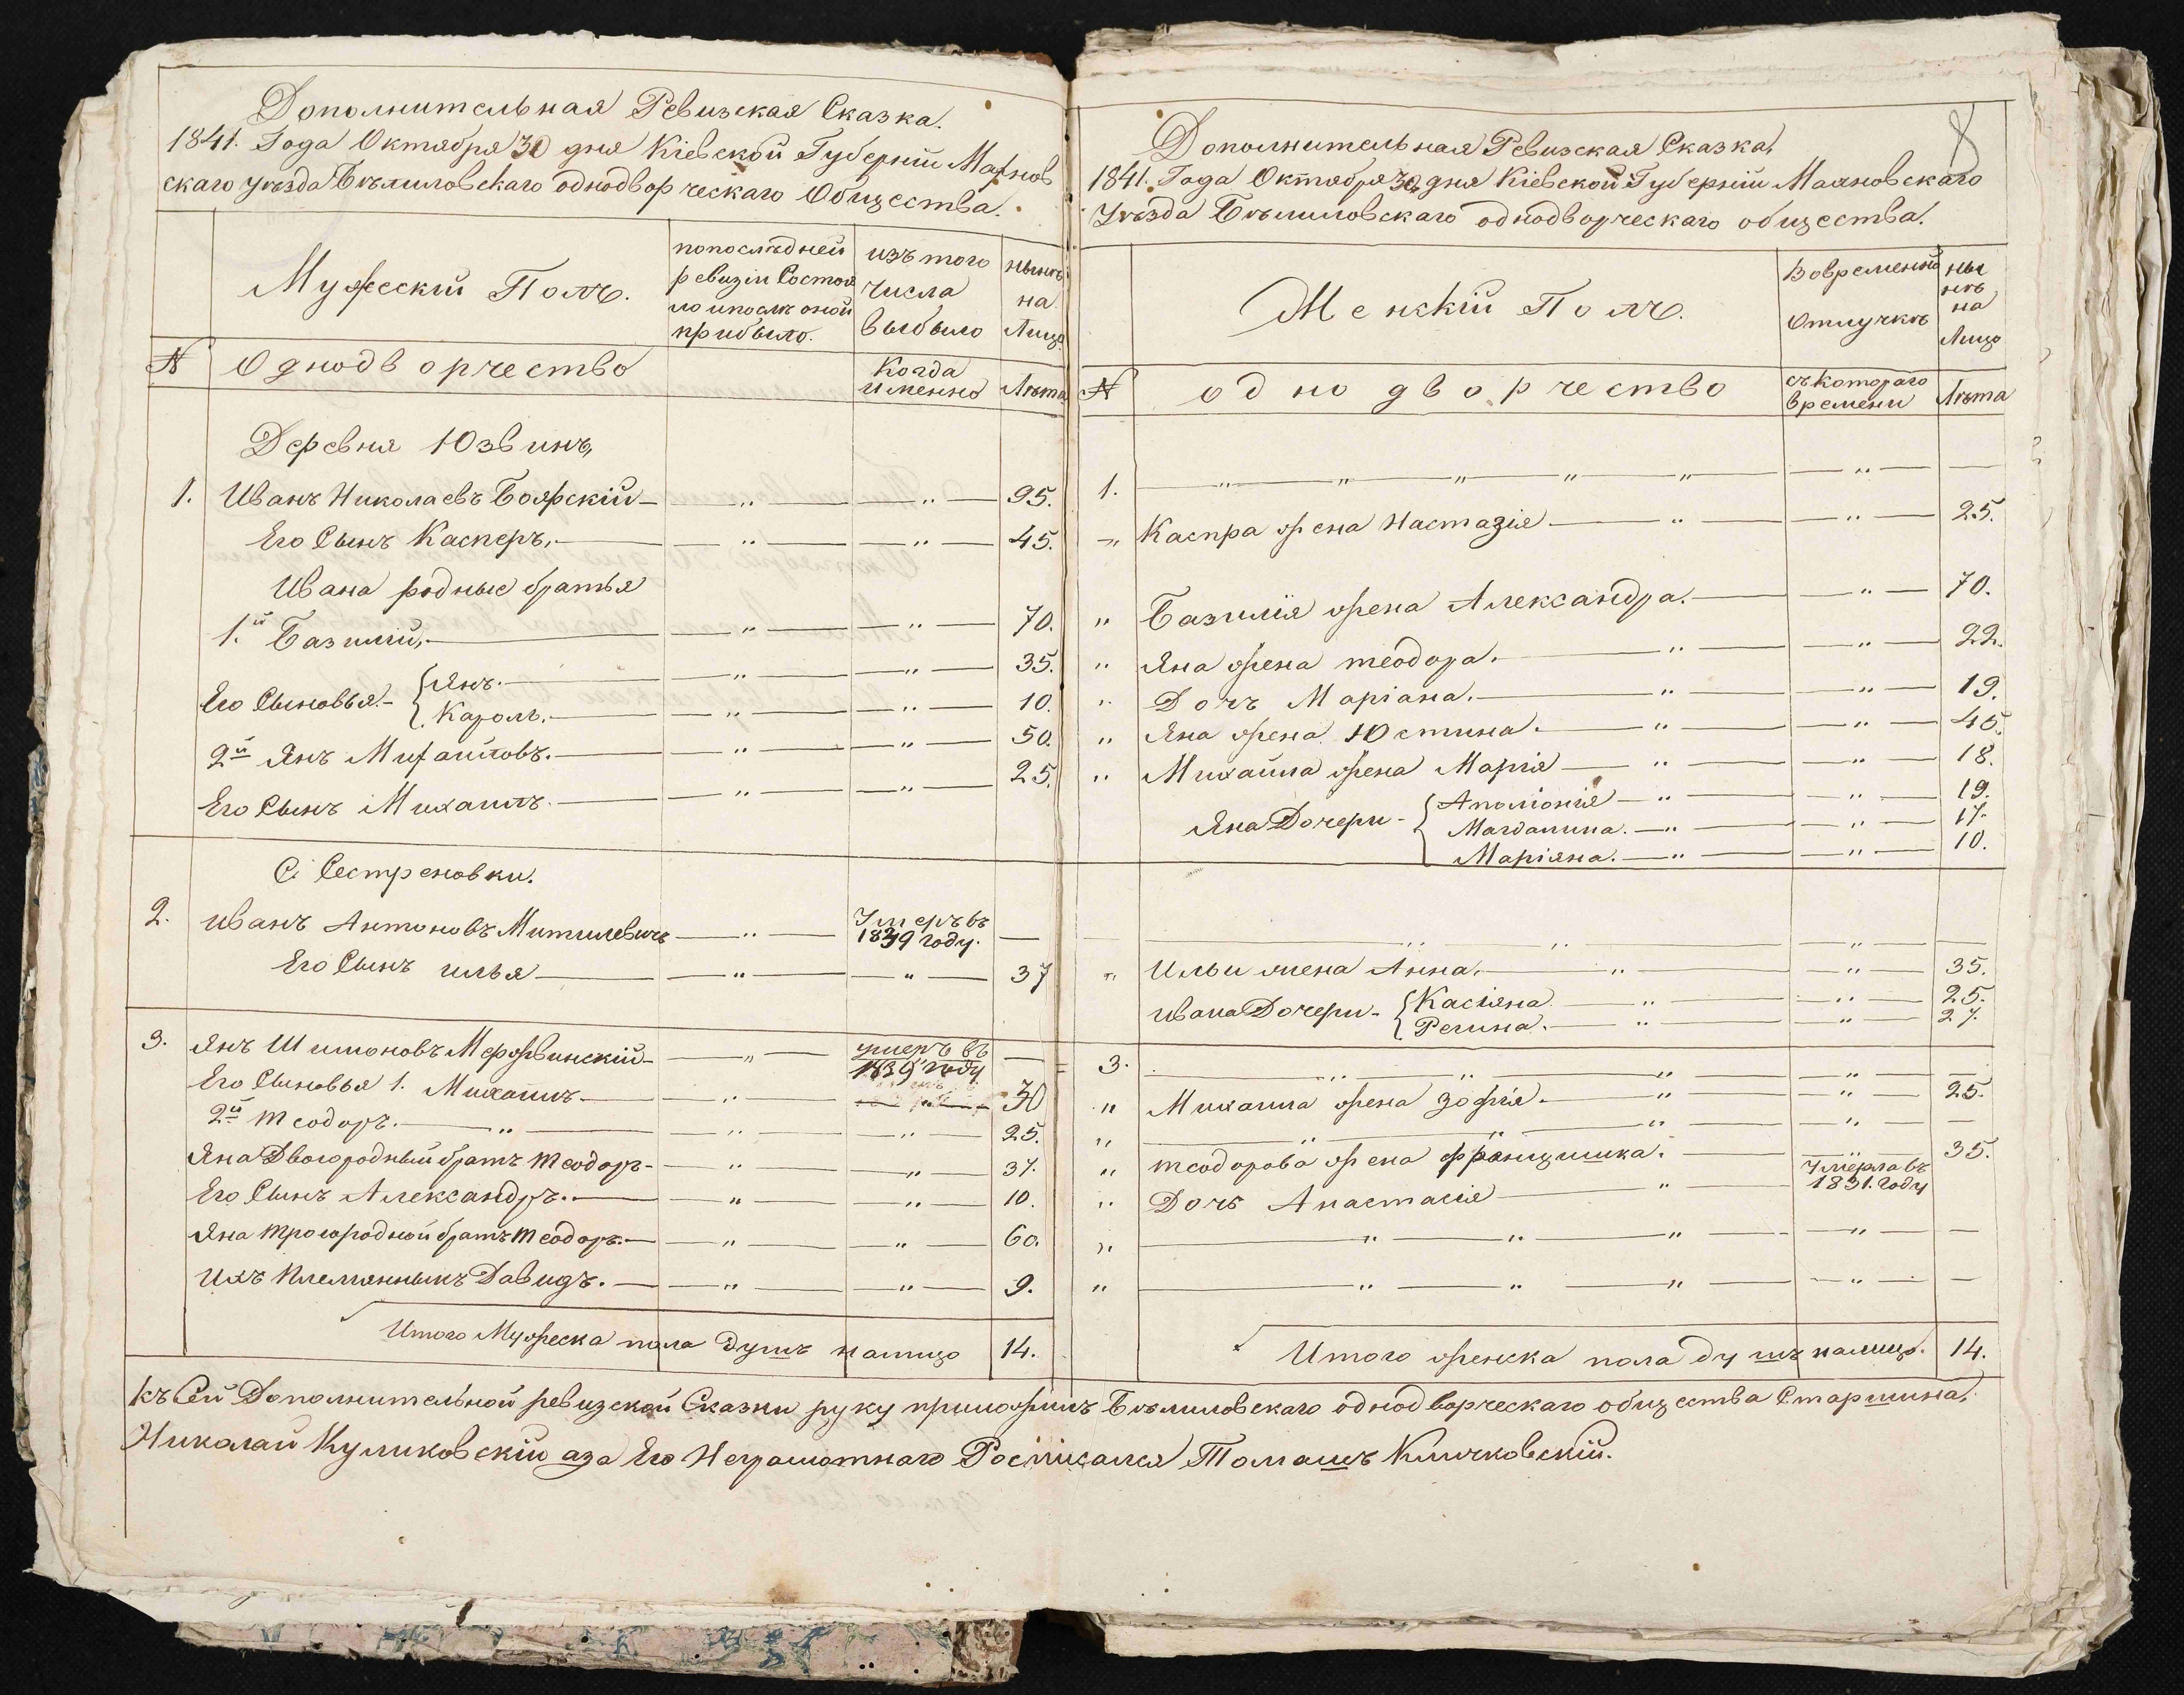 Дополнительная Ревизская Сказка.
1841. Года Октября 30 дня Кіевской Губерніи Махнов
скаго уѣзда Бѣлиловскаго однодворческаго Общества.
Мужескій Полъ.
попослѣдней
ревизіи Состоя
ло ипослѣ оной
прибыло.
изъ того
числа
выбыло
нынѣ
на
Лицо
№ Однодворчество
Когда
именно
Лѣта
Деревня Юзвинъ,
1. Иванъ Николаевъ Боярскій — " — " — 95.
Его Сынъ Касперъ, — " — " — 45.
Ивана родные братья
1.й Базилій, — " — " — 70.
Его Сыновья - Янъ. — " — " — 35.
Кароль. — " — " — 10.
2й Янъ Михайловъ. — " — " — 50.
Его Сынъ Михаилъ — " — " — 25.
С: Сестреновки.
2. Иванъ Антоновъ Митилевичъ — " — Умеръ въ
1839 году. —
Его Сынъ илья — " — " — 37
3. Янъ Шимоновъ Мержвинскій — " — умеръ въ
1839 году —
Его Сыновья 1. Михаилъ — " — " — 30
2й теодоръ. — " — " — 25.
Яна Двоюродный братъ теодоръ — " — " — 37.
Его Сынъ Александръ. — " — " — 10.
Яна троюродной братъ теодоръ. — " — " — 60.
Ихъ племянныкъ Давидъ. — " — " — 9.
Итого Мужеска пола душъ налицо 14.
8
Дополнительная Ревизская Сказка,
1841. Года Октября 30 дня Кіевской Губерніи Махновскаго
Уѣзда Бѣлиловскаго однодворческаго общества.
Женскій Полъ.
Вовременной
Отлучкѣ
ны
нѣ
на
Лицо
№ однодворчество
съ котораго
времени
Лѣта
1. — " — " — " — " — " — " — —
" Каспра жена Настазія — " — " — 25.
" Базилія жена Александра. — " — 70.
" Яна жена теодора. — " — " — 22.
" Дочь Маріана. — " — " — 19.
" Яна жена Юстина. — " — " — 45.
" Михайла жена Марія — " — " — 18.
Яна Дочери - Аполіонія — " — " — 19.
Магдалина. — " — " — 17.
Маріяна. — " — " — 10.
— " — " — " — —
" Ильи жена Анна. — " — " — 35.
ивана Дочери - Касіяна — " — " — 25.
Регина. — " — " — 27.
3. — " — " — " — " — —
" Михаила жена зофія. — " — " — 25.
" — " — " — " — " — —
" теодорова жена францишка. — " — 35.
" Дочь Анастасія — " — Умерла въ
1831. году
" — " — " — " — " — —
" — " — " — " — " — —
Итого женска пола душъ налицо. 14.
Къ Сей Дополнительной ревизской Сказки руку приложилъ Бѣлиловскаго однодворческаго общества Старшина,
Николай Куликовскій аза Его Неграмотнаго Росписался Томашъ Кличковскій.